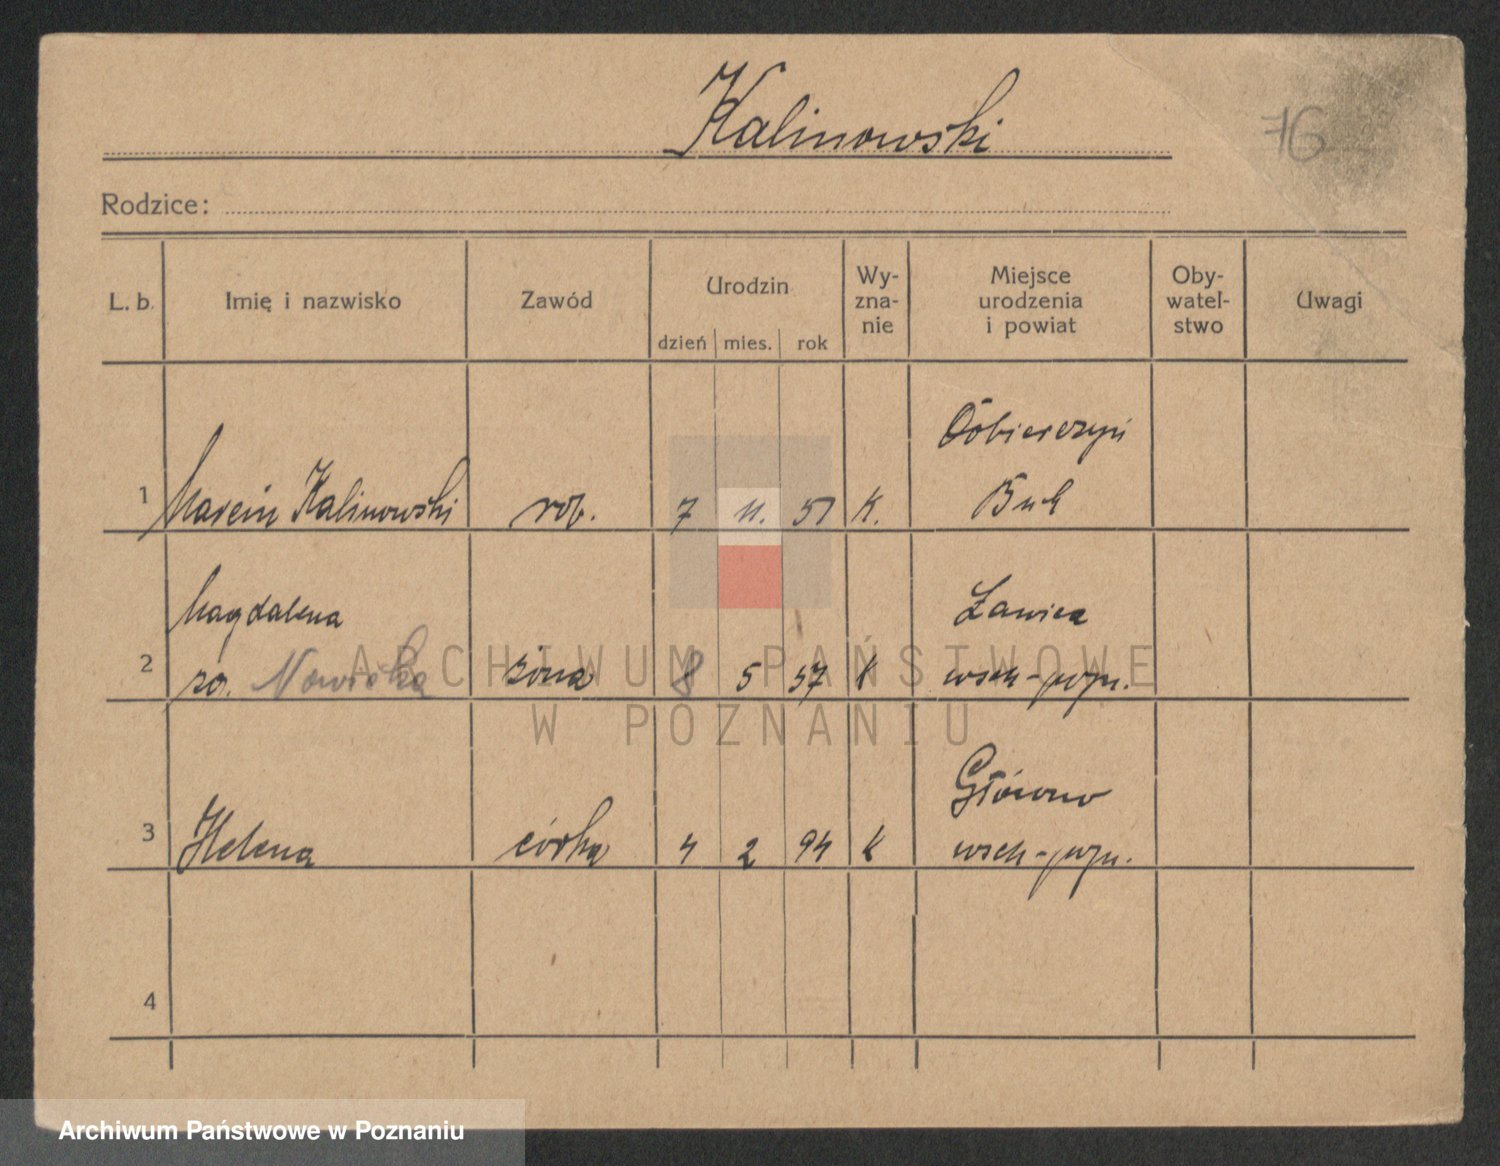 Kalinowski
76
Rodzice:
L. b. Imię i nazwisko Zawód Urodzin dzień mies. rok Wy-zna-nie Miejsce urodzenia i powiat Oby-watel-stwo Uwagi
Obierczyń
1 Marcin Kalinowski rob. 7 11. 57 K. Buk
Magdalena Ławica
2 zd. Nowicka żona 8 5 57 K wsch-pozn.
Główno
3 Helena córka 4 2 94 K wsch-pozn.
4
ARCHIWUM PAŃSTWOWE
W POZNANIU
Archiwum Państwowe w Poznaniu